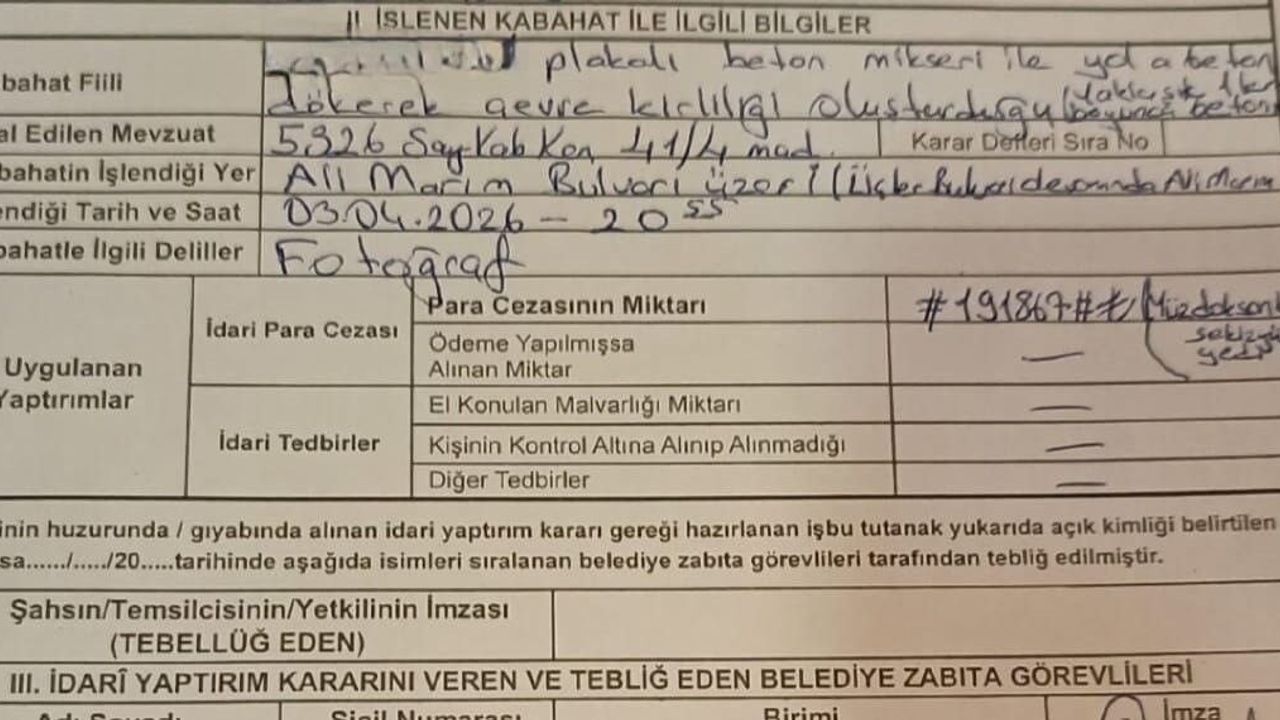 II İSLENEN KABAHAT İLE İLGİLİ BİLGİLER
bahat Fiili
plakalı beton mikseri ile yola beton
dökerek çevre kirliliği oluşturduğu (Yaklaşık 1 km boyunca beton
al Edilen Mevzuat
5326 Say. Kab. Kan. 41/4 mad.
Karar Defteri Sıra No
bahatin İşlendiği Yer
Ali Marım Bulvarı üzeri
endiği Tarih ve Saat
03.04.2026 - 20 55
bahatle İlgili Deliller
Fotoğraf
Uygulanan
Yaptırımlar
İdari Para Cezası
Para Cezasının Miktarı
#191867#₺ (Yüzdoksan
sekizyü
yedi
Ödeme Yapılmışsa
Alınan Miktar
—
İdari Tedbirler
El Konulan Malvarlığı Miktarı
—
Kişinin Kontrol Altına Alınıp Alınmadığı
—
Diğer Tedbirler
—
inin huzurunda / gıyabında alınan idari yaptırım kararı gereği hazırlanan işbu tutanak yukarıda açık kimliği belirtilen
sa....../...../20.....tarihinde aşağıda isimleri sıralanan belediye zabıta görevlileri tarafından tebliğ edilmiştir.
Şahsın/Temsilcisinin/Yetkilinin İmzası
(TEBELLÜĞ EDEN)
III. İDARÎ YAPTIRIM KARARINI VEREN VE TEBLİĞ EDEN BELEDİYE ZABITA GÖREVLİLERİ
Adı Soyadı
Sicil Numarası
Birimi
İmza